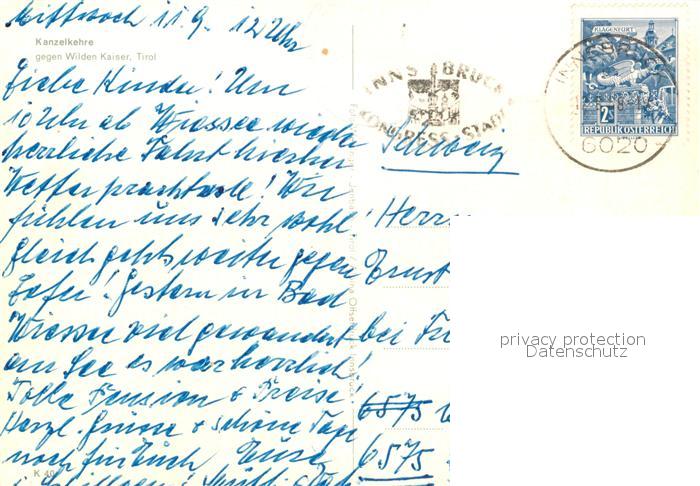 Mittwoch 11.9. 12 Uhr
Kanzelkehre
gegen Wilden Kaiser, Tirol
Liebe Kinder! Um
10 Uhr ab Wiessee wieder
herrliche Fahrt hierher
Wetter prachtvoll! Wir
fühlen uns sehr wohl!
Gleich gehts weiter gegen
Zofer! Gestern in Bad
Wiessee viel gewandert
am See es war herrlich!
Tolle Pension + Preise
Herzl. Grüsse + schöne Tage
noch für Euch Eure
K 40
INNSBRUCK
KONGRESS-STADT
INNSBRUCK
6020
KLAGENFURT
2S
REPUBLIK ÖSTERREICH
Schweiz
Herrn
Ernst
bei
6575
6575
privacy protection
Datenschutz